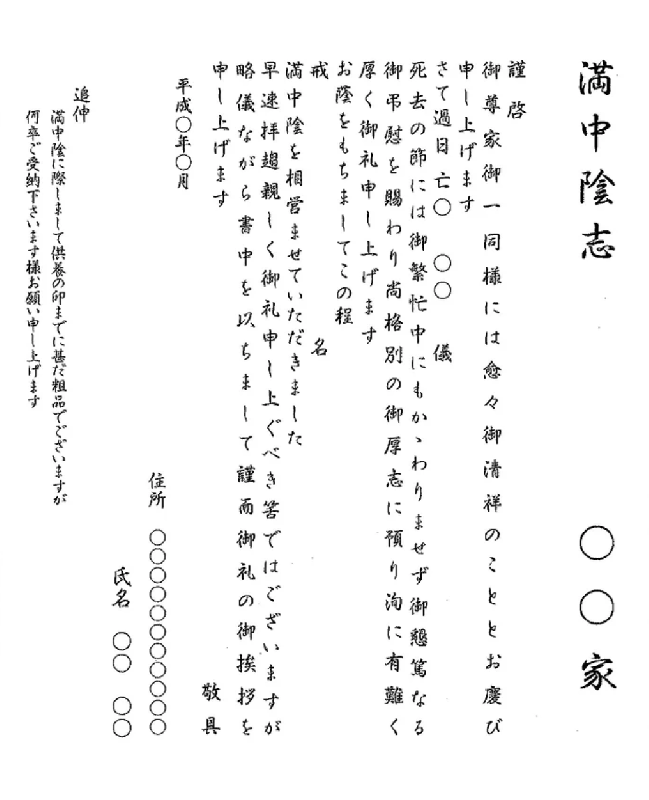 満中陰志 〇〇家
謹啓
御尊家御一同様には愈々御清祥のこととお慶び
申し上げます
さて過日亡〇 〇〇 儀
死去の節には御繁忙中にもかゝわりませず御懇篤なる
御弔慰を賜わり尚格別の御厚志に預り洵に有難く
厚く御礼申し上げます
お蔭をもちましてこの程
戒 名
満中陰を相営ませていただきました
早速拝趨親しく御礼申し上ぐべき筈ではございますが
略儀ながら書中を以ちまして謹而御礼の御挨拶を
申し上げます
敬具
平成〇年〇月
住所 〇〇〇〇〇〇〇〇〇〇〇
氏名 〇〇 〇〇
追伸
満中陰に際しまして供養の印までに甚だ粗品でございますが
何卒ご受納下さいます様お願い申し上げます